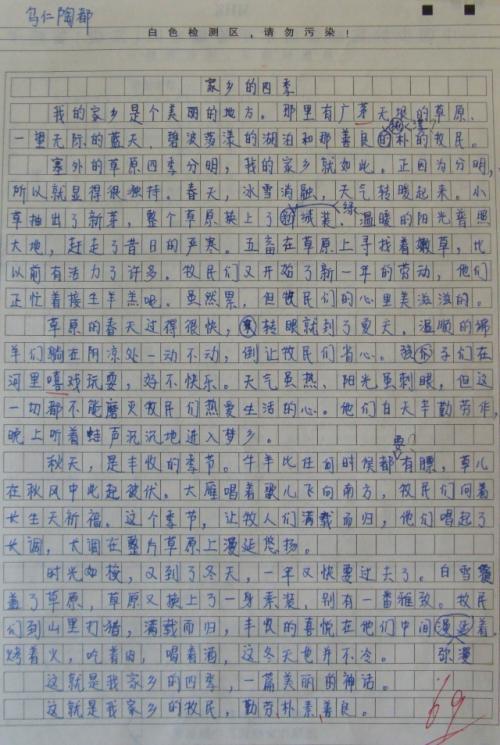 乌仁陶都
白色检测区，请勿污染！
家乡的四季
我的家乡是个美丽的地方。那里有广茅无垠的草原、
一望无际的蓝天、碧波荡漾的湖泊和那善良的朴的牧民。
塞外的草原四季分明，我的家乡就如此。正因为分明，
所以就显得很独特。春天，冰雪消融，天气转暖起来。小
草抽出了新芽，整个草原换上了绿城装。温暖的阳光普照
大地，赶走了昔日的严寒。五畜在草原上寻找着嫩草，比
以前有活力了许多。牧民们又开始了新一年的劳动，他们
正忙着接生羊羔呢。虽然累，但牧民们的心里美滋滋的。
草原的春天过得很快，转眼就到了夏天。温顺的绵
羊们躺在阴凉处一动不动，倒让牧民们省心。孩子们在
河里嘻戏玩耍，好不快乐。天气虽热、阳光虽刺眼，但这
一切都不能磨灭牧民们热爱生活的心。他们白天辛勤劳作，
晚上听着蛙声沉沉地进入梦乡。
要
秋天，是丰收的季节。牛羊比任何时候都有膘，草儿
在秋风中此起彼伏。大雁唱着歌儿飞向南方，牧民们向着
长生天祈福。这个季节，让牧人们满载而归，他们唱起了
长调，大调在整片草原上漫延悠扬。
时光如梭，又到了冬天，一年又快要过去了。白雪覆
盖了草原，草原又换上了一身素装，别有一番雅致。牧民
们到山里打猎，满载而归，丰收的喜悦在他们中间漫延着。
烤着火，吃着肉，喝着酒，这冬天也并不冷。 弥漫
这就是我家乡的四季，一篇美丽的神话。
这就是我家乡的牧民，勤劳、朴素、善良。
69